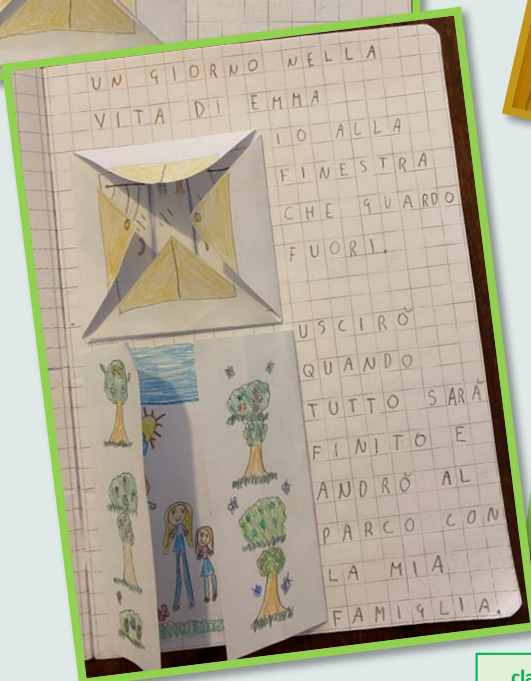 UN GIORNO NELLA
VITA DI EMMA
IO ALLA
FINESTRA
CHE GUARDO
FUORI.
USCIRÒ
QUANDO
TUTTO SARÀ
FINITO E
ANDRÒ AL
PARCO CON
LA MIA
FAMIGLIA.